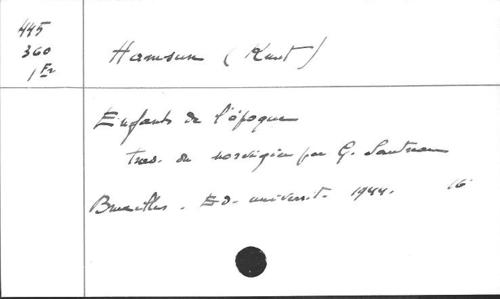 445
360
1 Fr
Hamsun (Knut)
Enfants de l'époque
Trad. du norvégien par G. Sautreau
Bruxelles. Ed. universit. 1944. 16